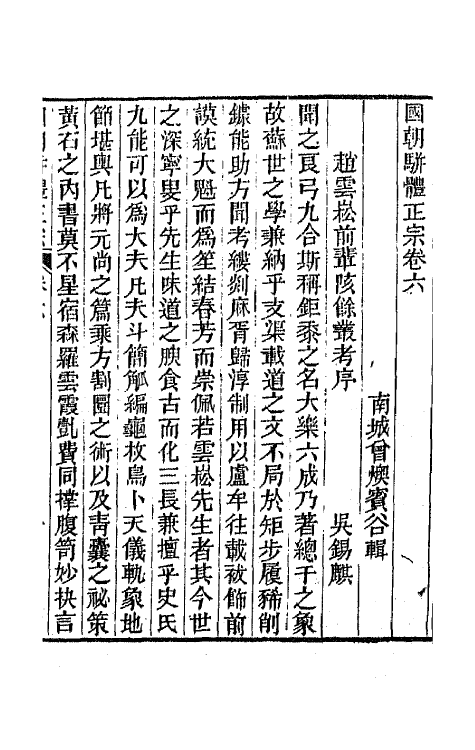 國朝駢體正宗卷六
南城曾燠賓谷輯
趙雲崧前輩陔餘叢考序
吳錫麒
聞之良弓九合斯稱鉅黍之名大樂六成乃著總干之象
故蘇世之學兼納乎支渠載道之文不局於矩步履豨削
鐻能助方聞考縷剡麻胥歸淳制用以盧牟往載祓飾前
謨統大魁而爲笙結春芳而崇佩若雲崧先生者其今世
之深寧叟乎先生味道之腴食古而化三長兼擅乎史氏
九能可以爲大夫凡夫斗簡觚編龜枚鳥卜天儀軌象地
節堪輿凡將元尚之篇乘方割圜之術以及靑囊之祕策
黃石之丙書莫不星宿森羅雲霞甏費同撑腹笥妙抉言